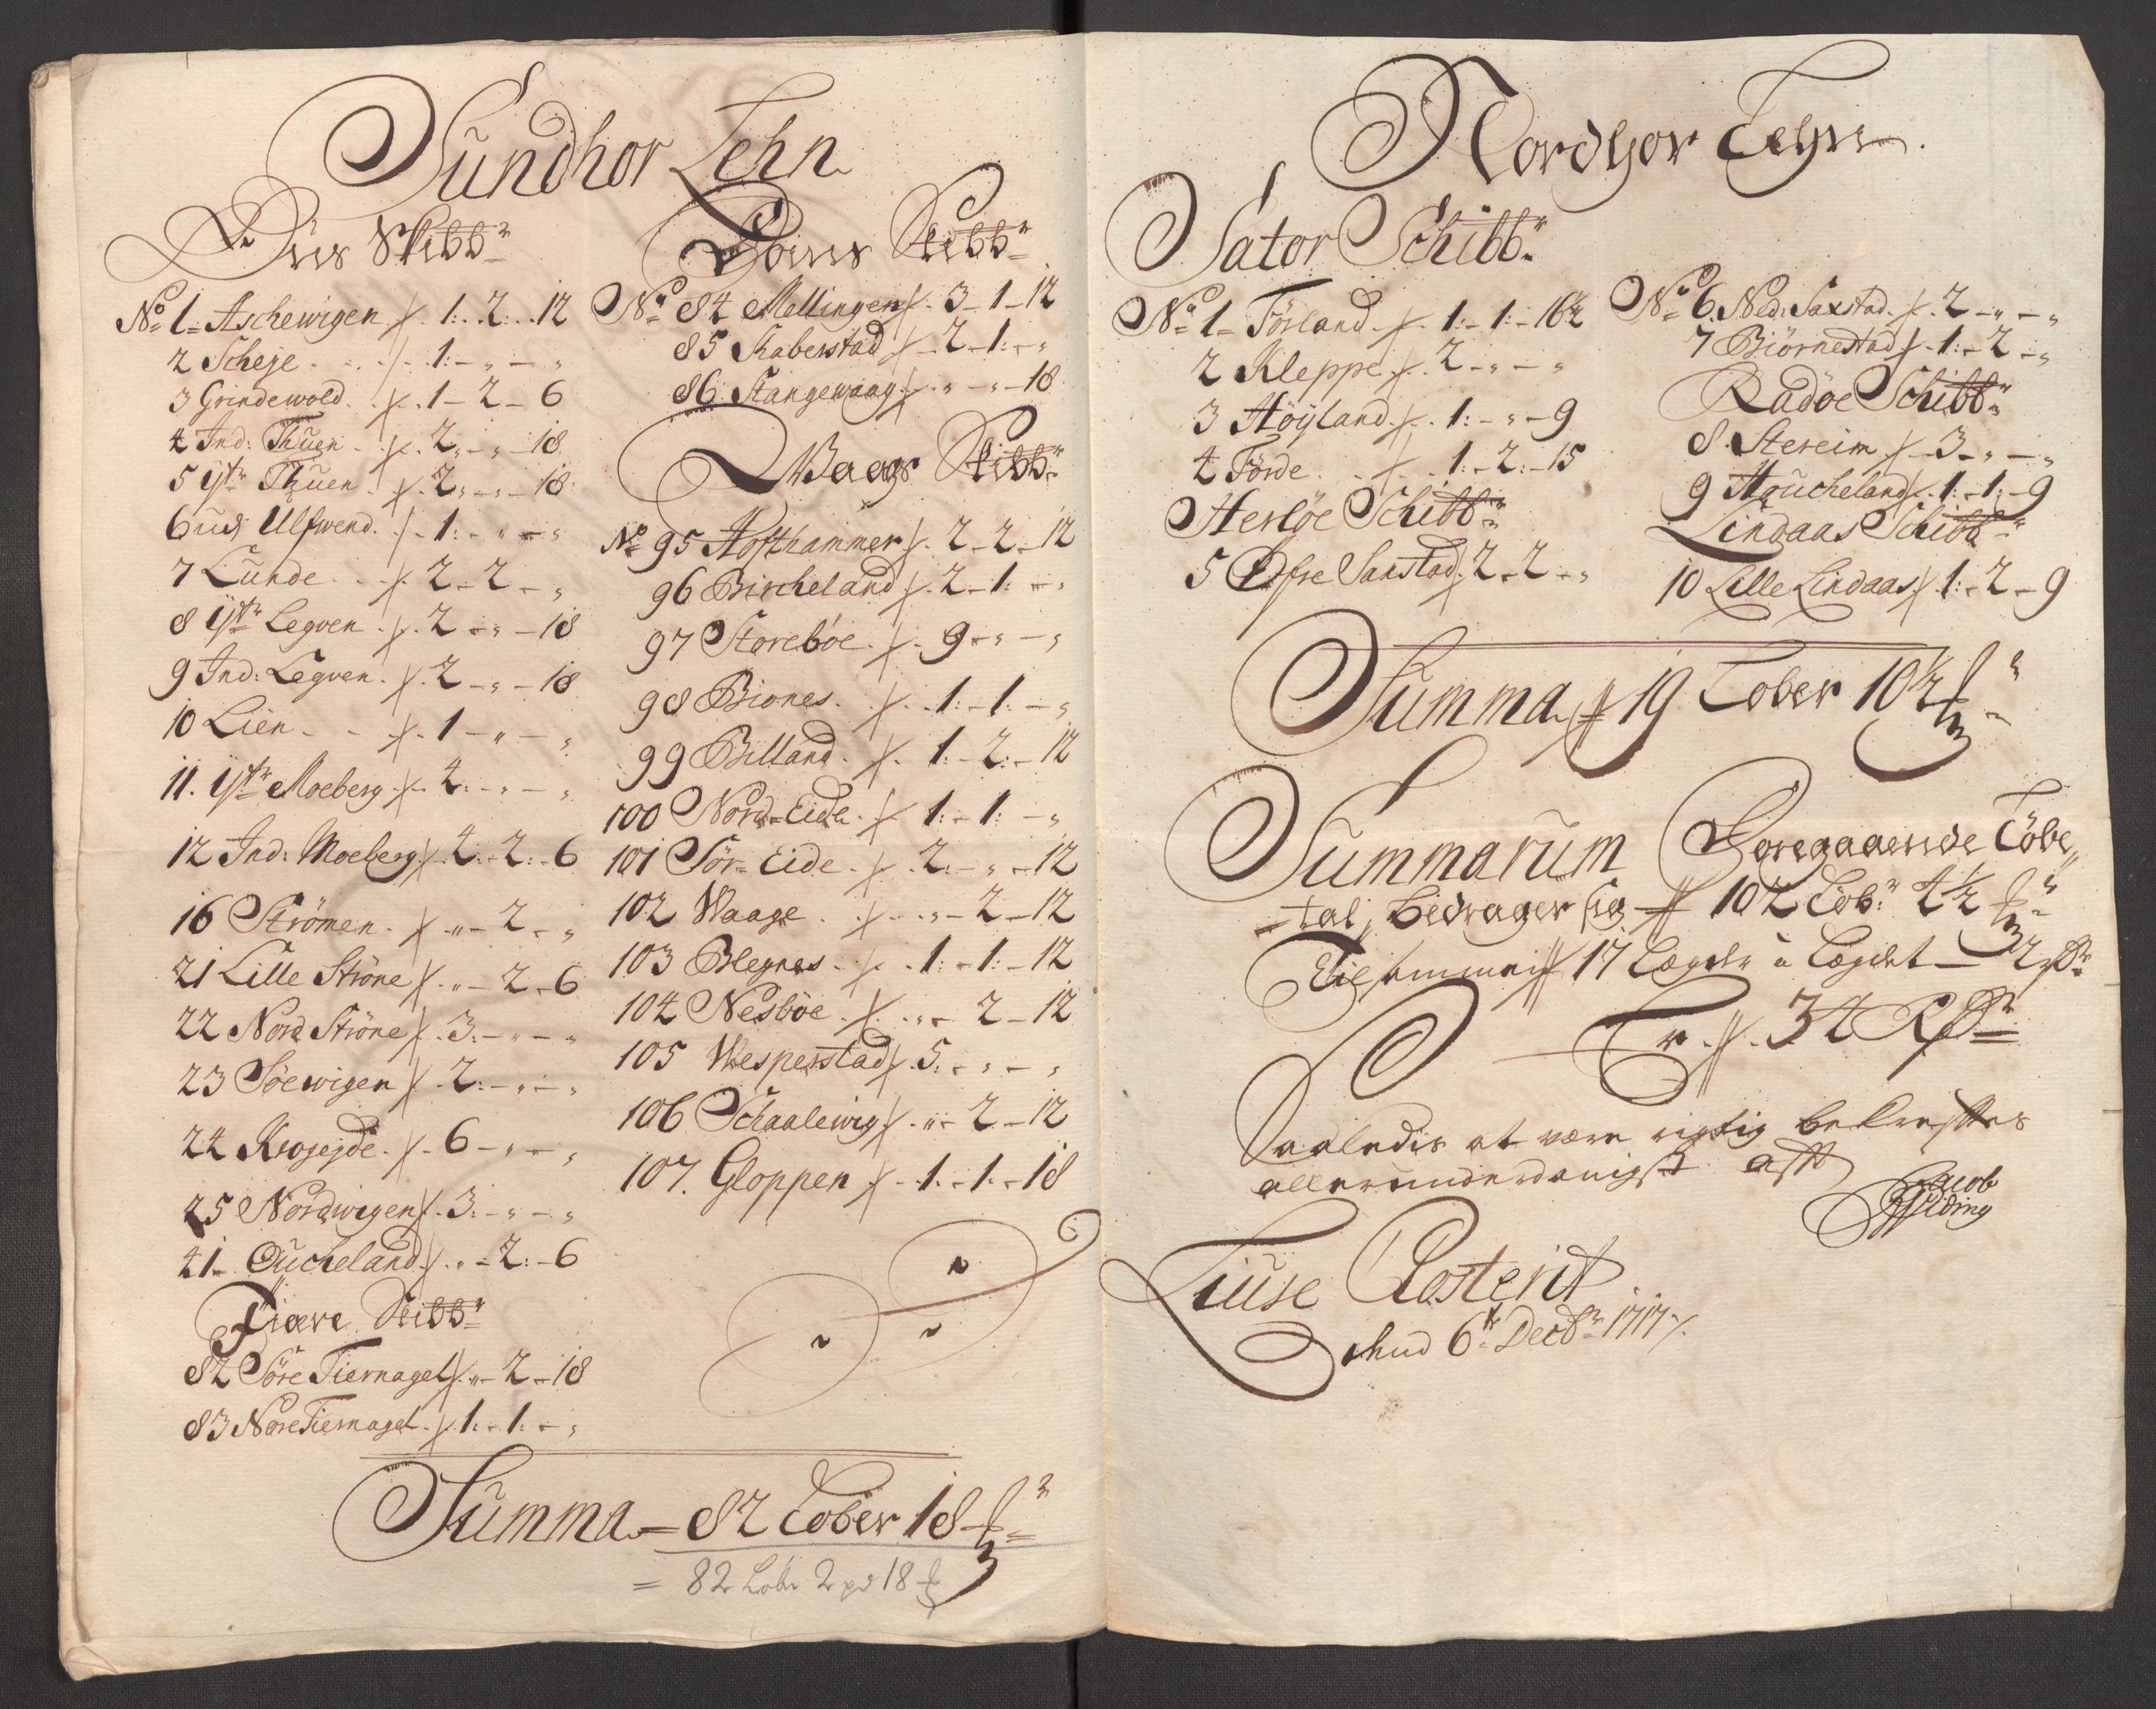 Sundhor Lehn
Øens Skibb:r
No 1 Aschewigen ./. 1: 2 . 12
2 Scheje . . ./. 1: - " - "
3 Grindewold ./. 1 - 2 - 6
4 Ind: Thuen ./. 2 - " - 18
5 Ystr Thuen ./. 2 - " - 18
6 ud Ulfwend. ./. 1: - " - "
7 Lunde . . ./. 2 - 2 - "
8 Ystr Legven ./. 2 - " - 18
9 Ind: Legven ./. 2 - " - 18
10 Lien - - ./. 1 - " - "
11. Ystr Moeberg ./. 4 - " - "
12 Ind: Moeberg ./. 4 - 2: - 6
16 Strömen ./. " - 2 - "
21 Lille Ströne ./. " - 2 - 6
22 Nord Ströne ./. 3: - " - "
23 Söewigen ./. 2: - " - "
24 Krojejde ./. 6 - " - "
25 Nordwigen ./. 3: - " - "
41 Oucheland ./. " - 2: - 6
Fiære Skibb:r
82 Söre Tiernagel ./. " - 2 - 18
83 Nore Tiernagel ./. 1: - 1: - "
Skibb:r
No 84 Mellingen ./. 3 - 1 - 12
85 Skaberstad ./. 2 - 1: - "
86 Stangewaag ./. " - " - 18
Waags Skibb:r
No 95 Hofthammer ./. 2 - 2 - 12
96 Bircheland ./. 2 - 1: - "
97 Storebøe ./. 9 - " - "
98 Biones ./. 1: - 1: - "
99 Billand ./. 1: - 2: - 12
100 Nord-Eide ./. 1: - 1: - "
101 Sör-Eide ./. 2: - " - 12
102 Waage ./. " - 2 - 12
103 Blegnes ./. 1: - 1: - 12
104 Nesböe ./. " - 2 - 12
105 Wesperstad ./. 5: - " - "
106 Schaalewig ./. " - 2 - 12
107. Gloppen ./. 1. - 1. - 18
Summa = 82 Løber 18
= 82 Løbr 2 pd 18
Nordhor Lehn.
Sator Schibb:r
No 1 Förland ./. 1: - 1: - 16½
2 Kleppe ./. 2 - " - "
3 Höyland ./. 1: - " - 9
4 Förde ./. 1: - 2: - 15
Herløe Schibb:r
5 Øfre Saxstad ./. 2 - 2 - "
No 6 Ned: Saxstad ./. 2 - " - "
7 Biörnestad ./. 1: - 2 - "
Radöe Schibb:r
8 Stereim ./. 3 - " - "
9 Houcheland ./. 1: - 1: - 9
Lindaas Schibb:r
10 Lille Lindaas ./. 1: - 2 - 9
Summa 19 Løber 10½
Summarum Foregaaende Löbe
tal, bedrager sig 102 Löb:r 4½
Til sammen 17 Lægder a Lægdet 2
Er ./. 34 R
Saaledis at være rigtig bekreftes
allerunderdanigst aff
Jacob
Lüuse Closterit
6te Decbr 1717